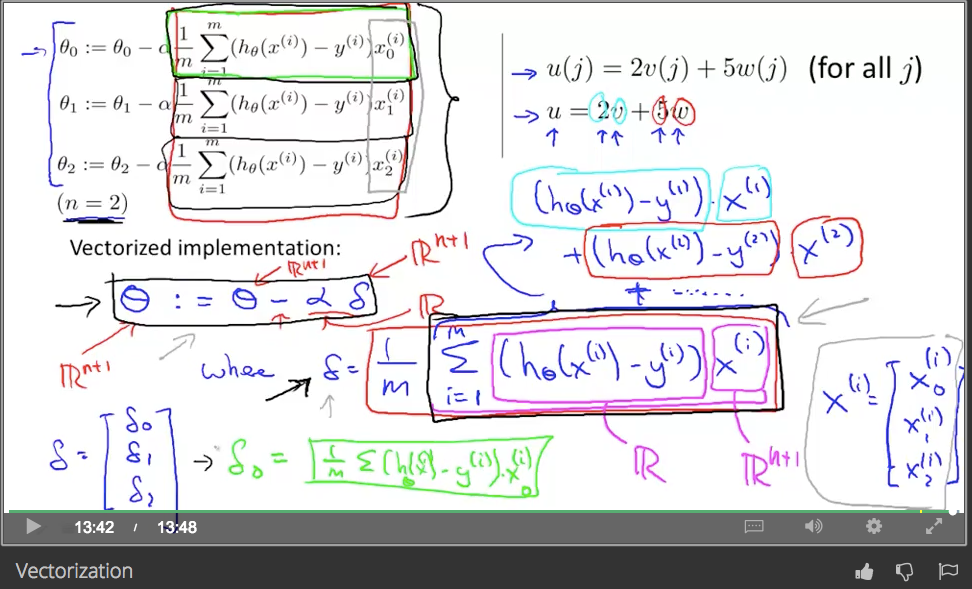 θ₀ := θ₀ − α 1/m ∑ᵢ₌₁ᵐ (h_θ(x⁽ⁱ⁾) − y⁽ⁱ⁾) x₀⁽ⁱ⁾
θ₁ := θ₁ − α 1/m ∑ᵢ₌₁ᵐ (h_θ(x⁽ⁱ⁾) − y⁽ⁱ⁾) x₁⁽ⁱ⁾
θ₂ := θ₂ − α 1/m ∑ᵢ₌₁ᵐ (h_θ(x⁽ⁱ⁾) − y⁽ⁱ⁾) x₂⁽ⁱ⁾
(n = 2)
→ u(j) = 2v(j) + 5w(j) (for all j)
→ u = 2v + 5w
↑ ↑↑ ↑↑
(hθ(x⁽¹⁾) − y⁽¹⁾) · x⁽¹⁾
+ (hθ(x⁽²⁾) − y⁽²⁾) x⁽²⁾
+ ........
Vectorized implementation:
ℝⁿ⁺¹ ℝⁿ⁺¹
→ θ := θ − α δ
ℝⁿ⁺¹ ℝ
where → δ = 1/m ∑ᵢ₌₁ᵐ (hθ(x⁽ⁱ⁾) − y⁽ⁱ⁾) x⁽ⁱ⁾
ℝ ℝⁿ⁺¹
x⁽ⁱ⁾ = [x₀⁽ⁱ⁾
x₁⁽ⁱ⁾
x₂⁽ⁱ⁾]
δ = [δ₀
δ₁
δ₂]
→ δ₀ = 1/m ∑ (hθ(x⁽ⁱ⁾) − y⁽ⁱ⁾) · x₀⁽ⁱ⁾
13:42 / 13:48
Vectorization